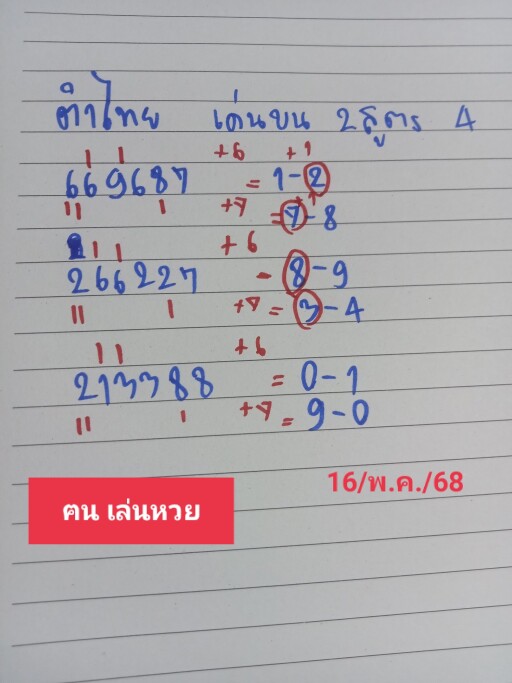 ตำไทย เด่นบน 2สูตร 4
+6 +1
669687 = 1-2
+7 +1
= 7-8
+6
266227 - 8-9
+7 = 3-4
+6
213388 = 0-1
+7 = 9-0
16/พ.ค./68
ฅน เล่นหวย